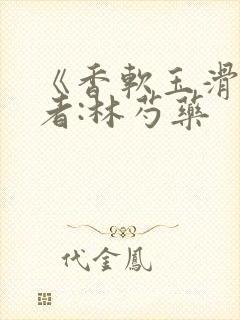 《香軟玉滑
者:林芍藥
代金鳳